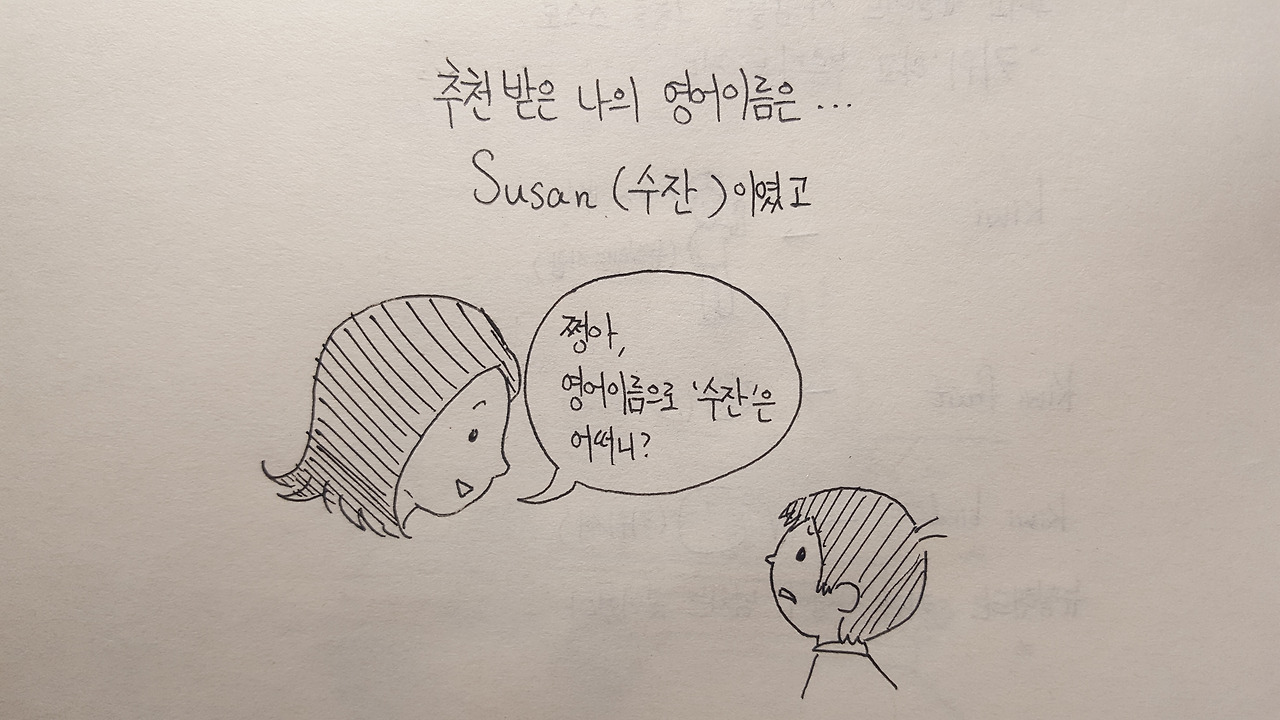 추천 받은 나의 영어이름은 ...
Susan (수잔)이였고
쩡아,
영어이름으로 '수잔'은
어떠니?